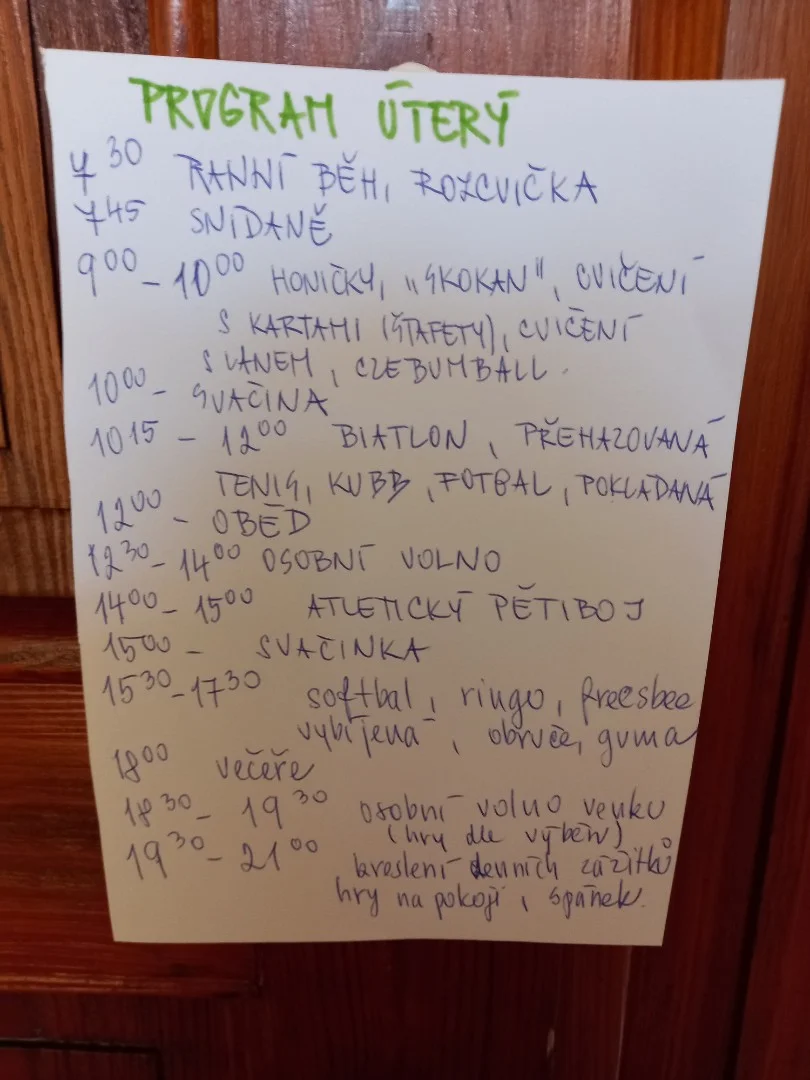 PROGRAM ÚTERÝ
7 30 RANNÍ BĚH, ROZCVIČKA
7 45 SNÍDANĚ
9 00 – 10 00 HONIČKY, "SKOKAN", CVIČENÍ
S KARTAMI (ŠTAFETY), CVIČENÍ
S LANEM, CZEBUMBALL.
10 00 – SVAČINA
10 15 – 12 00 BIATLON, PŘEHAZOVANÁ
TENIS, KUBB, FOTBAL, POKLADANÁ
12 00 – OBĚD
12 30 – 14 00 OSOBNÍ VOLNO
14 00 – 15 00 ATLETICKÝ PĚTIBOJ
15 00 – SVAČINKA
15 30 – 17 30 softbal, ringo, freesbee
vybíjená, obruče, guma
18 00 večeře
18 30 – 19 30 osobní volno venku
(hry dle výběru)
19 30 – 21 00 kreslení denních zážitků
hry na pokoji, spánek.